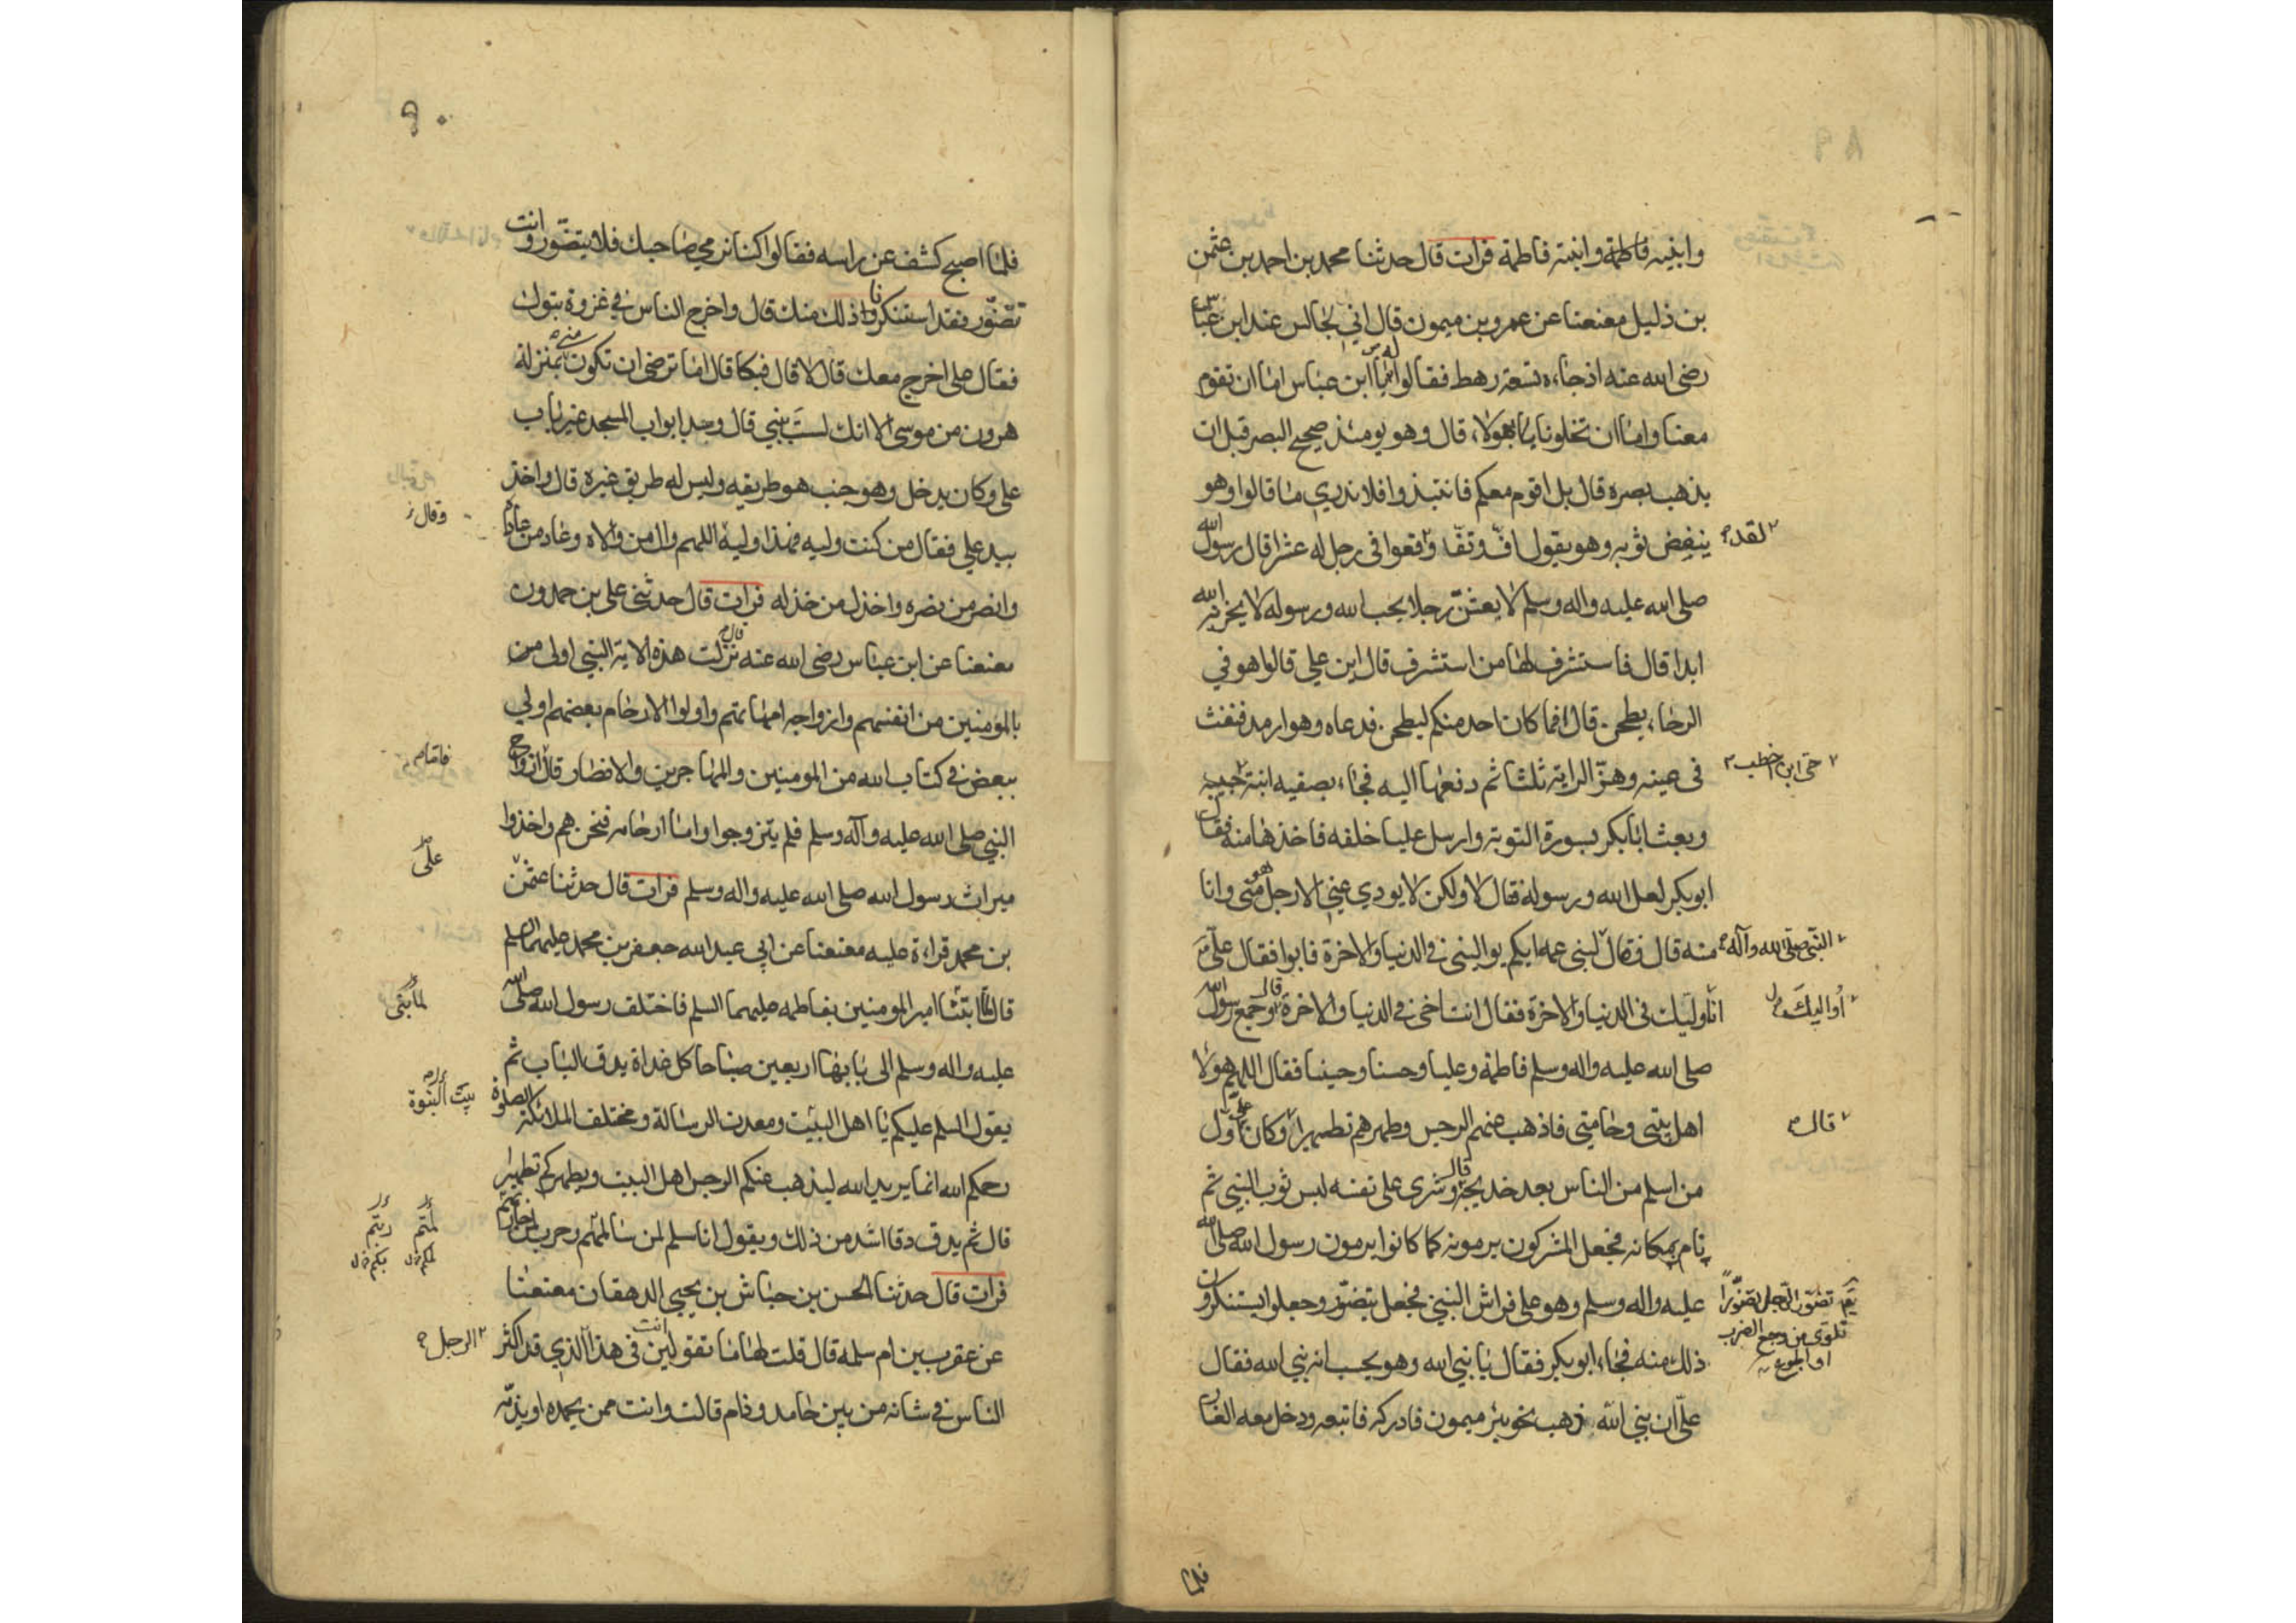 وابنيه فاطمة وابنته فاطمة فرات قال حدثنا محمد بن احمد بن عثمن
بن ذليل معنعنا عن عمرو بن ميمون قال اني لجالس عند ابن عباس
رضى الله عنه اذ جاءه تسعة رهط فقالوا يا ابن عباس اما ان تقوم
معنا واما ان تخلونا يا هولاء قال وهو يومئذ صحيح البصر قبل ان
يذهب بصره قال بل اقوم معكم فانتبذوا فلا ندري ما قالوا وهو
ينفض ثوبه وهو يقول اف وتف وقعوا في رجل له عشر قال رسول الله
لقد
صلى الله عليه واله وسلم لا بعثن رجلا يحب الله ورسوله لا يخزيه الله
ابدا قال فاستشرف لها من استشرف قال اين علي قالوا هو في
الرحاء يطحن قال افما كان احد منكم ليطحن فدعاه وهو ارمد فنفث
في عينه وهز الراية ثلثا ثم دفعها اليه فجاء بصفيه ابنة حيى
حى ابن اخطب
وبعث ابا بكر بسورة التوبة وارسل عليا خلفه فاخذها منه فقال
ابو بكر لعل الله ورسوله قال لا ولكن لا يودي عني الا رجل هو مني وانا
منه قال فقال لبنى عمه ايكم يوالينى في الدنيا والاخرة فابوا فقال علي
النبى صلى الله وآله
انا وليك فى الدنيا والاخرة فقال انت اخى في الدنيا والاخرة قال وجمع رسول الله
أواليك
صلى الله عليه واله وسلم فاطمة وعليا وحسنا وحسينا فقال اللهم هولاء
اهل بيتى وخامتي فاذهب عنهم الرجس وطهرهم تطهيرا وكان علي اول
قال
من اسلم من الناس بعد خديجة قال وشرى على نفسه لبس ثوب النبي ثم
نام بمكانه فجعل المشركون يرمونه كما كانوا يرمون رسول الله صلى الله
عليه واله وسلم وهو على فراش النبي فجعل يتضور وجعلوا يستنكرون
تضور الرجل تضورا
تلوى من وجع الضرب
او الجوع
ذلك منه فجاء ابو بكر فقال يا نبي الله وهو يحسب انه نبي الله فقال
علي ان نبي الله ذهب نحو بئر ميمون فادركه فاتبعه ودخل معه الغار
فلما
٩٠
فلما اصبح كشف عن راسه فقالوا كنا نرمي صاحبك فلا يتضور وانت
تضور فقد استنكرنا ذلك منك قال واخرج الناس في غزوة تبوك
فقال علي اخرج معك قال لا قال فبكا قال اما ترضى ان تكون مني بمنزلة
هرون من موسى الا انك لست بنبي قال وسد ابواب المسجد غير باب
علي وكان يدخل وهو جنب هو طريقه وليس له طريق غيره قال واخذ
وقال
بيد علي فقال من كنت وليه فهذا وليه اللهم وال من والاه وعاد من عاداه
وانصر من نصره واخذل من خذله فرات قال حدثني علي بن حمدون
معنعنا عن ابن عباس رضى الله عنه قال نزلت هذه الاية النبي اولى من
بالمومنين من انفسهم وازواجه امهاتهم واولوا الارحام بعضهم اولي
ببعض في كتاب الله من المومنين والمهاجرين والانصار قال ازواج
فاما
النبي صلى الله عليه وآله وسلم فلم يتزوجوا واما ارحامه فنحن هم واخذوا
على
ميراث رسول الله صلى الله عليه واله وسلم فرات قال حدثنا عثمن
بن محمد قراءة عليه معنعنا عن ابي عبد الله جعفر بن محمد عليهما السلم
قال لما ابتنا امير المومنين بفاطمه عليهما السلم فاختلف رسول الله صلى الله
لما بنى
عليه واله وسلم الى بابها اربعين صباحا كل غداة يدق الباب ثم
يقول السلم عليكم يا اهل البيت ومعدن الرسالة ومختلف الملائكة الصلوة
بيت النبوة
رحمكم الله انما يريد الله ليذهب عنكم الرجس اهل البيت ويطهركم تطهيرا
قال ثم يدق دقا اشد من ذلك ويقول انا سلم لمن سالمتم وحرب لمن حاربتم
فرات قال حدثنا الحسن بن حباش بن يحيى الدهقان معنعنا
عن عقرب بن ام سلمه قال قلت لها ما تقولين انت فى هذا الذي قد اكثر
الرجل
الناس في شانه من بين حامد وذام قالت وانت ممن يحمده او يذمه